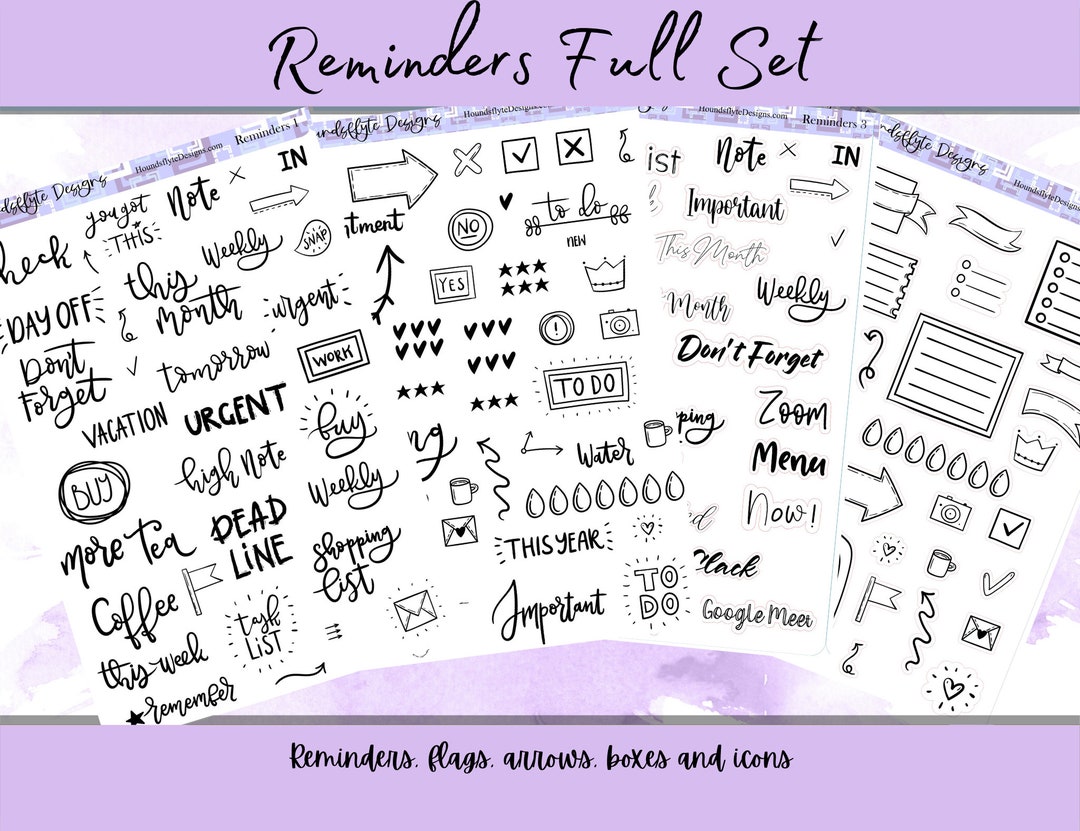 Reminders Full Set
ndsflyte Designs
HoundsflyteDesigns.com
Reminders 1
heck
you got
THIS
Note
IN
DAY OFF
this
month
Weekly
SNAP
urgent
Don't
Forget
tomorrow
WORK
VACATION
URGENT
buy
BUY
high Note
Weekly
more Tea
DEAD
LINE
shopping
list
Coffee
task
LIST
this week
remember
undsflyte Designs
HoundsflyteDesigns.com
tment
NO
to do
NEW
YES
!
TO DO
ng
Water
THIS YEAR
Important
TO
DO
HoundsflyteDesigns.com
Reminders 3
ist
Note
IN
Important
This Month
Month
Weekly
Don't Forget
Zoom
pping
Menu
Now!
lack
Google Meet
ndsflyte Designs
HoundsflyteDesigns
Reminders, flags, arrows, boxes and icons